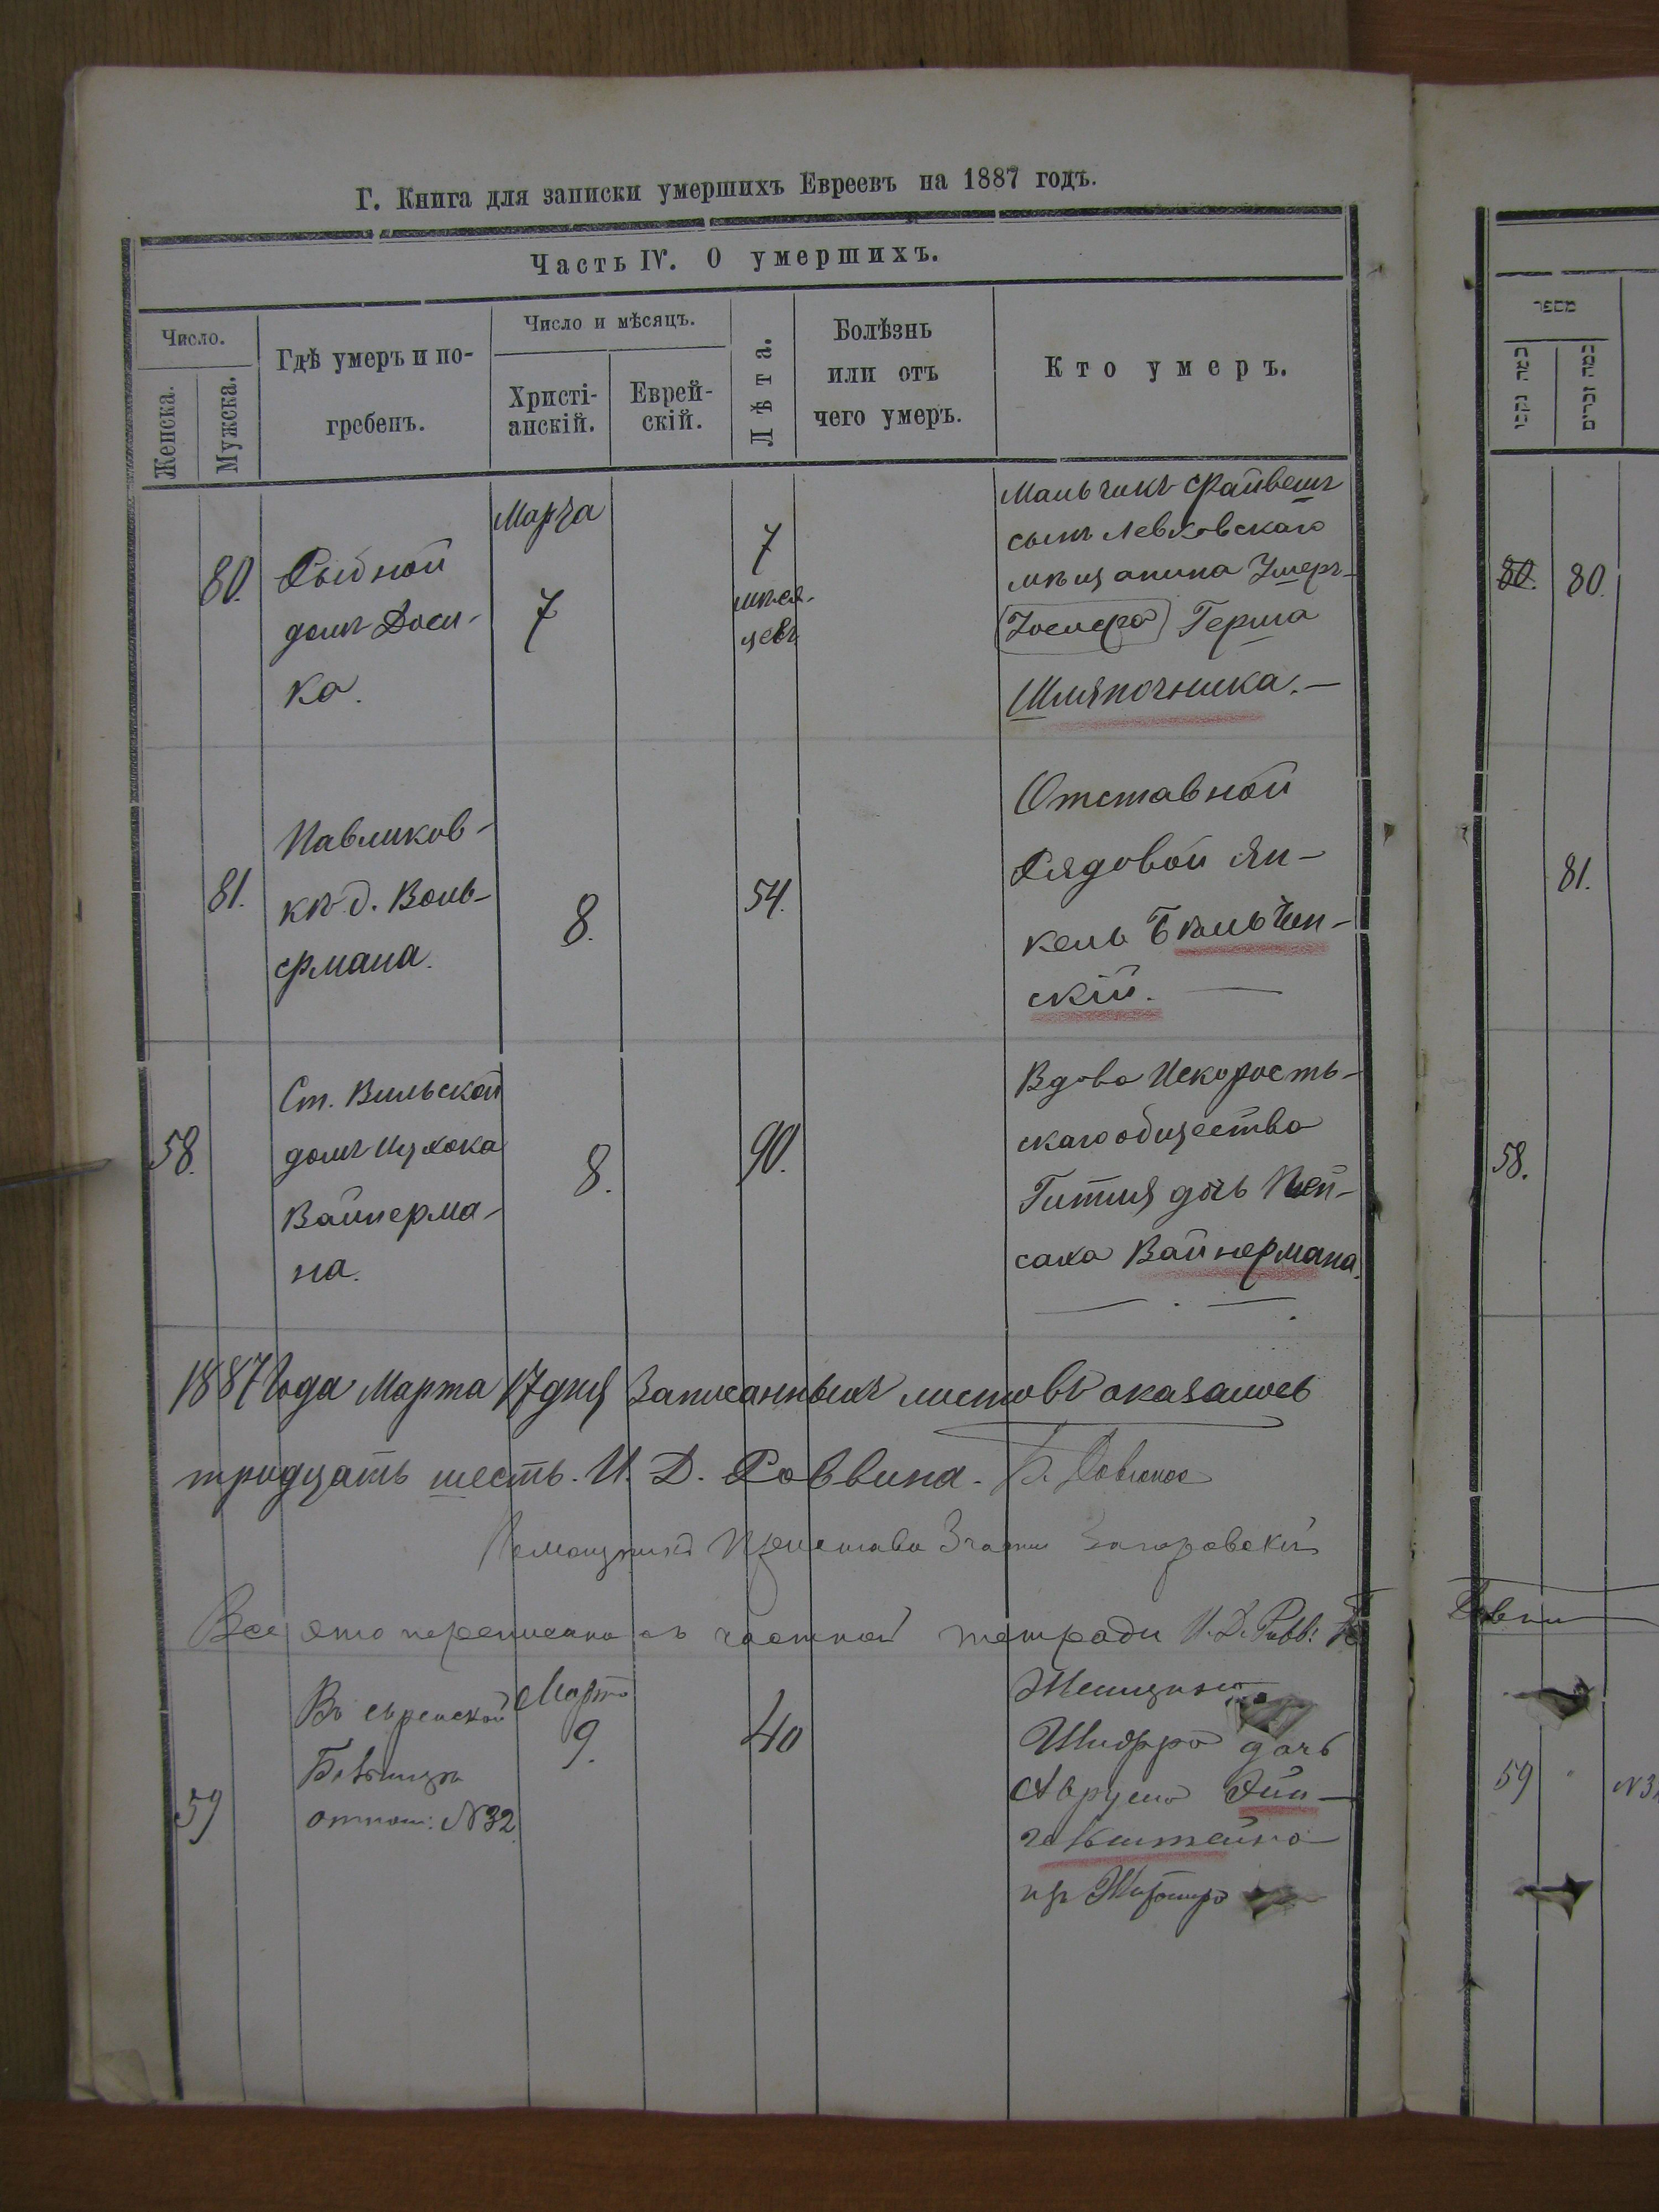 Г. Книга для записки умершихъ Евреевъ на 1887 годъ.
Часть IV. О умершихъ.
Число.
Женска.
Мужска.
Гдѣ умеръ и по-
гребенъ.
Число и мѣсяцъ.
Христі-
анскій.
Еврей-
скій.
Лѣта.
Болѣзнь
или отъ
чего умеръ.
Кто умеръ.
80.
Рыбной
домъ
ка.
Марта
7
7
мѣся-
цевъ
Мальчикъ Файвешъ
сынъ Левковскаго
мѣщанина
Герша
Шляпочника.
81.
Павликов-
кѣ д. Воль-
фмана.
8.
54.
Отставной
Рядовой Ян-
кель Бѣльчин-
скій.
58.
Ст. Вильской
домъ Ицхока
Вайнерма-
на.
8.
90.
Вдова Искорость-
скаго общества
Гитля дочь Пей-
саха Вайнермана.
1887 Года Марта 17 дня Записанныхъ листовъ оказалось
тридцать шесть. И. Д. Раввина.
Помощникъ Пристава 3 части
Все это переписано въ частной тетради И. Д. Равв:
59
Въ еврейской
Больницѣ
отнош: №32.
Марта
9.
40
Женщина
Шифра дочь
Аврума
из Житомира
מספר
80.
80.
81.
58.
59